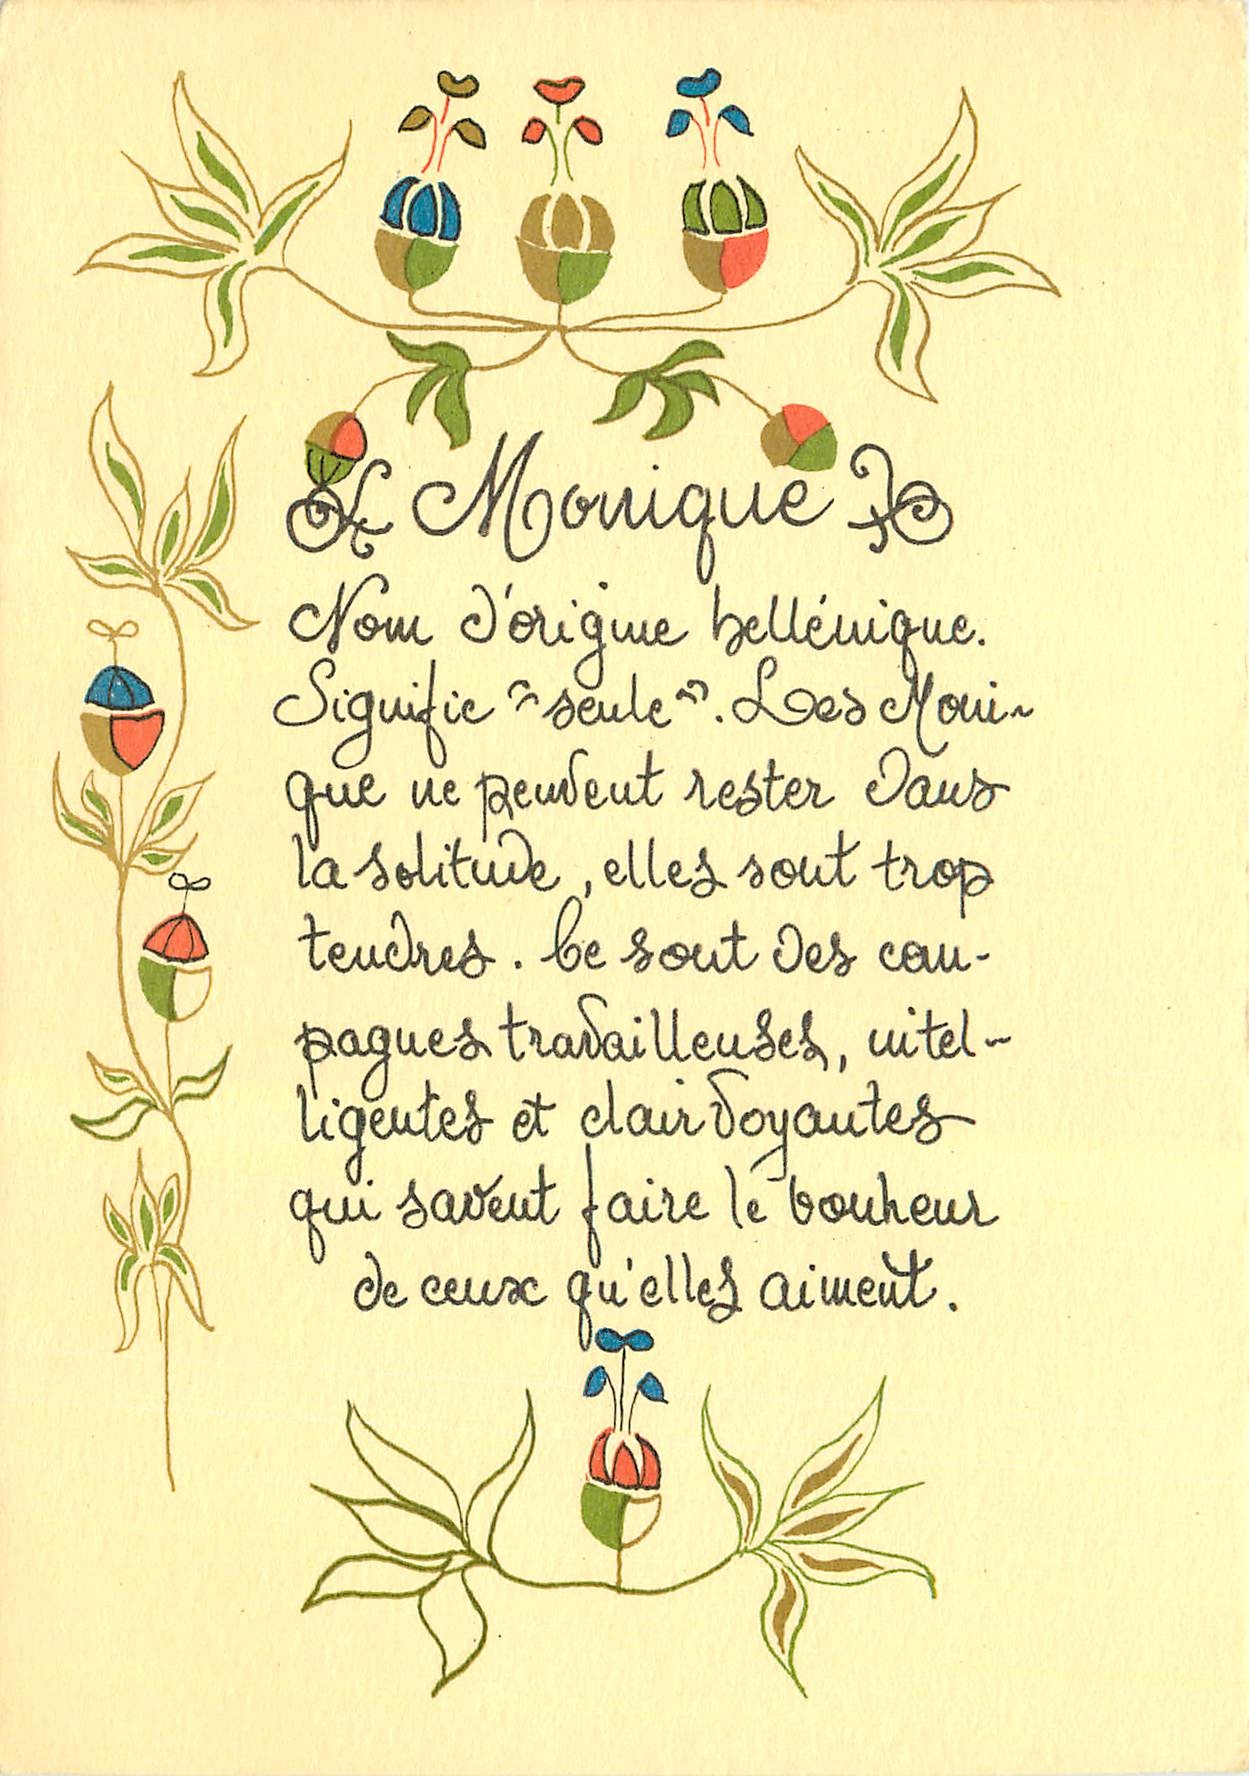 Monique
Nom d'origine hellénique.
Signifie "seule". Les Moni-
que ne peuvent rester dans
la solitude, elles sont trop
tendres. Ce sont des com-
pagnes travailleuses, intel-
ligentes et clairvoyantes
qui savent faire le bonheur
de ceux qu'elles aiment.